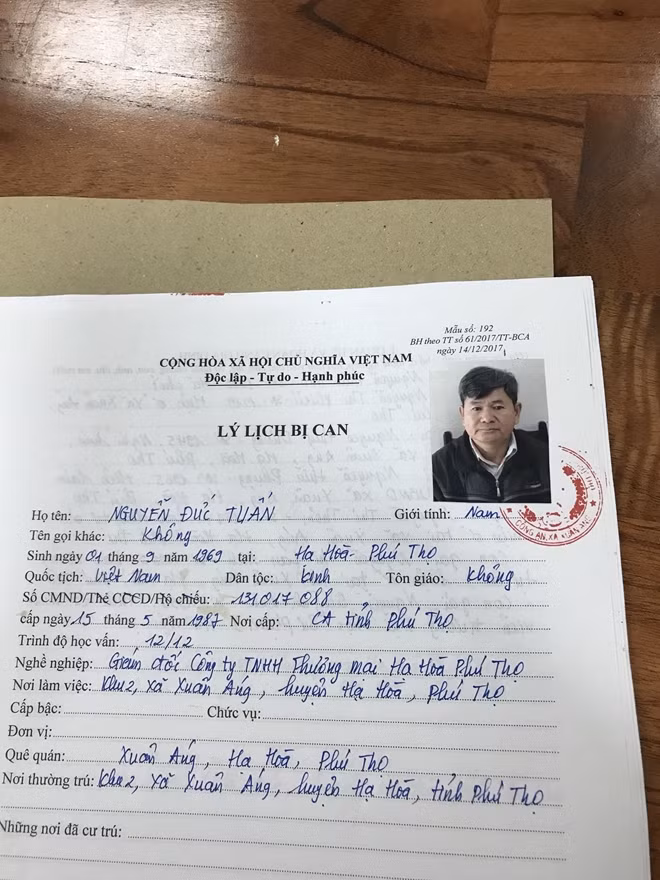 Mẫu số: 192
BH theo TT số 61/2017/TT-BCA
ngày 14/12/2017
CỘNG HÒA XÃ HỘI CHỦ NGHĨA VIỆT NAM
Độc lập - Tự do - Hạnh phúc
LÝ LỊCH BỊ CAN
Họ tên: NGUYỄN ĐỨC TUẤN Giới tính: Nam
CÔNG AN XÃ XUÂN ÁNG
Tên gọi khác: Không
Sinh ngày 01 tháng 9 năm 1969 tại: Hạ Hoà - Phú Thọ
Quốc tịch: Việt Nam Dân tộc: Kinh Tôn giáo: Không
Số CMND/Thẻ CCCD/Hộ chiếu: 131017088
cấp ngày 15 tháng 5 năm 1987 Nơi cấp: CA tỉnh Phú Thọ
Trình độ học vấn: 12/12
Nghề nghiệp: Giám đốc Công ty TNHH Thương mại Hạ Hoà Phú Thọ
Nơi làm việc: Khu 2, xã Xuân Áng, huyện Hạ Hoà, Phú Thọ
Cấp bậc: Chức vụ:
Đơn vị:
Quê quán: Xuân Áng, Hạ Hoà, Phú Thọ
Nơi thường trú: Khu 2, xã Xuân Áng, huyện Hạ Hoà, tỉnh Phú Thọ
Những nơi đã cư trú: